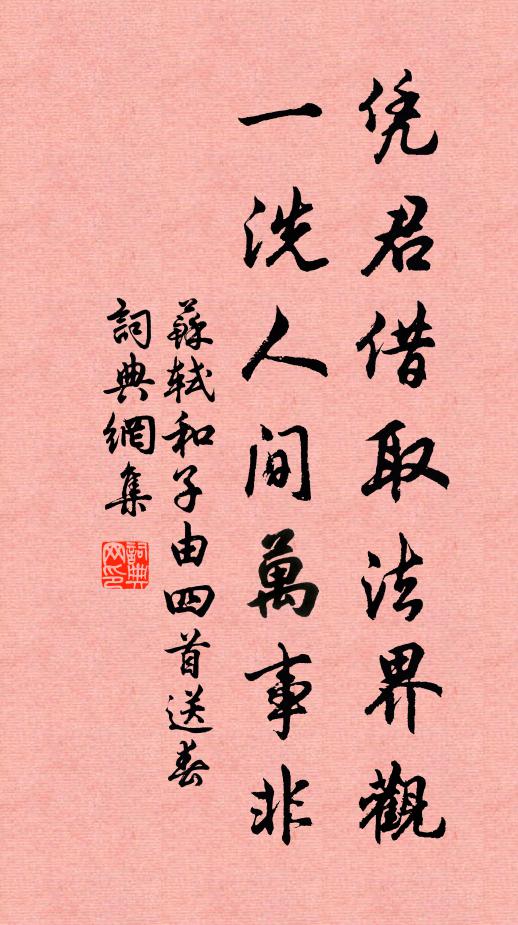 凭君借取法界觀
一洗人间萬事非
蘇軾和子由四首送春
詞典網集
詞典网印